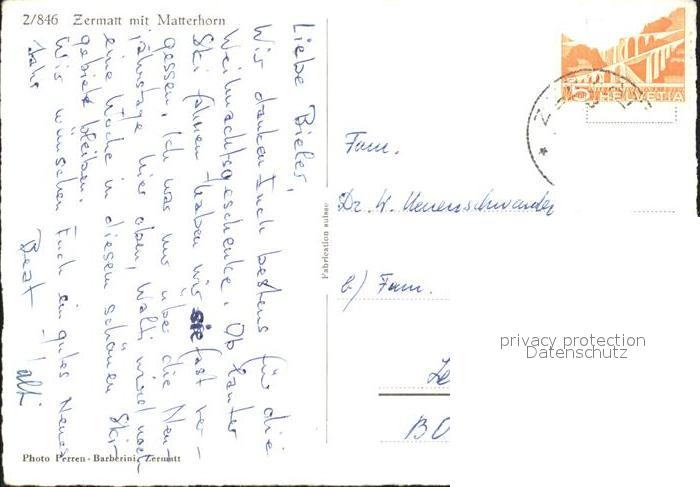 2/846 Zermatt mit Matterhorn
Liebe Bieler,
Wir danken Euch bestens für die
Weihnachtsgeschenke. Ob lauter
Ski fahren haben wir sie fast ver-
gessen. Ich war nur über die Neu-
jahrstage hier oben, Walti wird noch
eine Woche in diesem schönen Ski-
gebiet bleiben.
Wir wünschen Euch ein gutes Neues
Jahr
Beat
Walti
Fabrication suisse
5 HELVETIA
Z
Fam.
Dr. W. Neuenschwander
b) Fam.
BO
privacy protection
Datenschutz
Photo Perren-Barberini, Zermatt